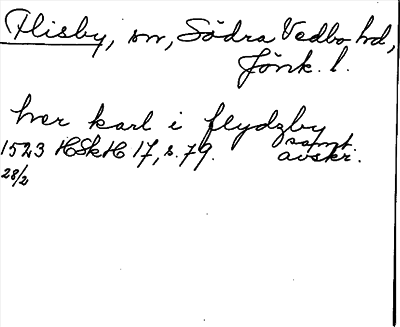 Flisby, sn, Södra Vedbo hd,
Jönk. l.
her karl i flydzby
1523 HSkH 17, s. 79. samt. avskr.
28/2